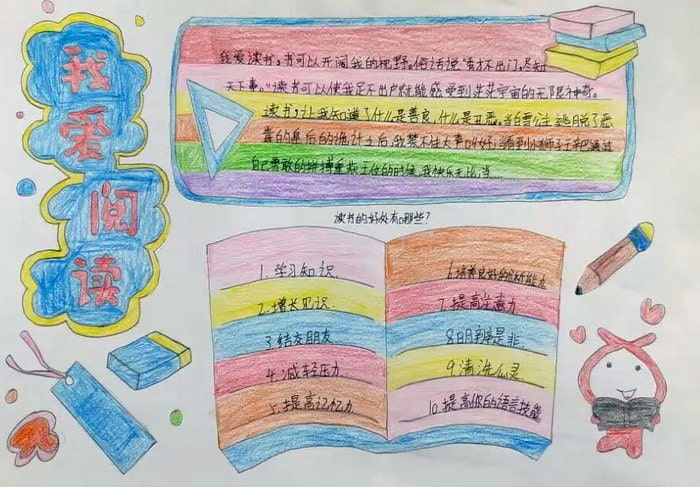 我爱阅读
我爱读书,书可以开阔我的视野。俗话说“秀才不出门,尽知
天下事。”读书可以使我足不出户就能感受到茫茫宇宙的无限神奇。
读书,让我知道了什么是善良,什么是丑恶。当白雪公主逃脱了恶
毒的皇后的诡计之后,我禁不住大声叫好;当看到小狮子王辛巴通过
自己勇敢的拼搏重获王位的时候,我快乐无比,
读书的好处有哪些?
1. 学习知识
2. 增长见识
3. 结交朋友
4. 减轻压力
5. 提高记忆力
6. 培养良好的分析能力
7. 提高注意力
8. 明辨是非
9. 清洗心灵
10. 提高你的语言技能